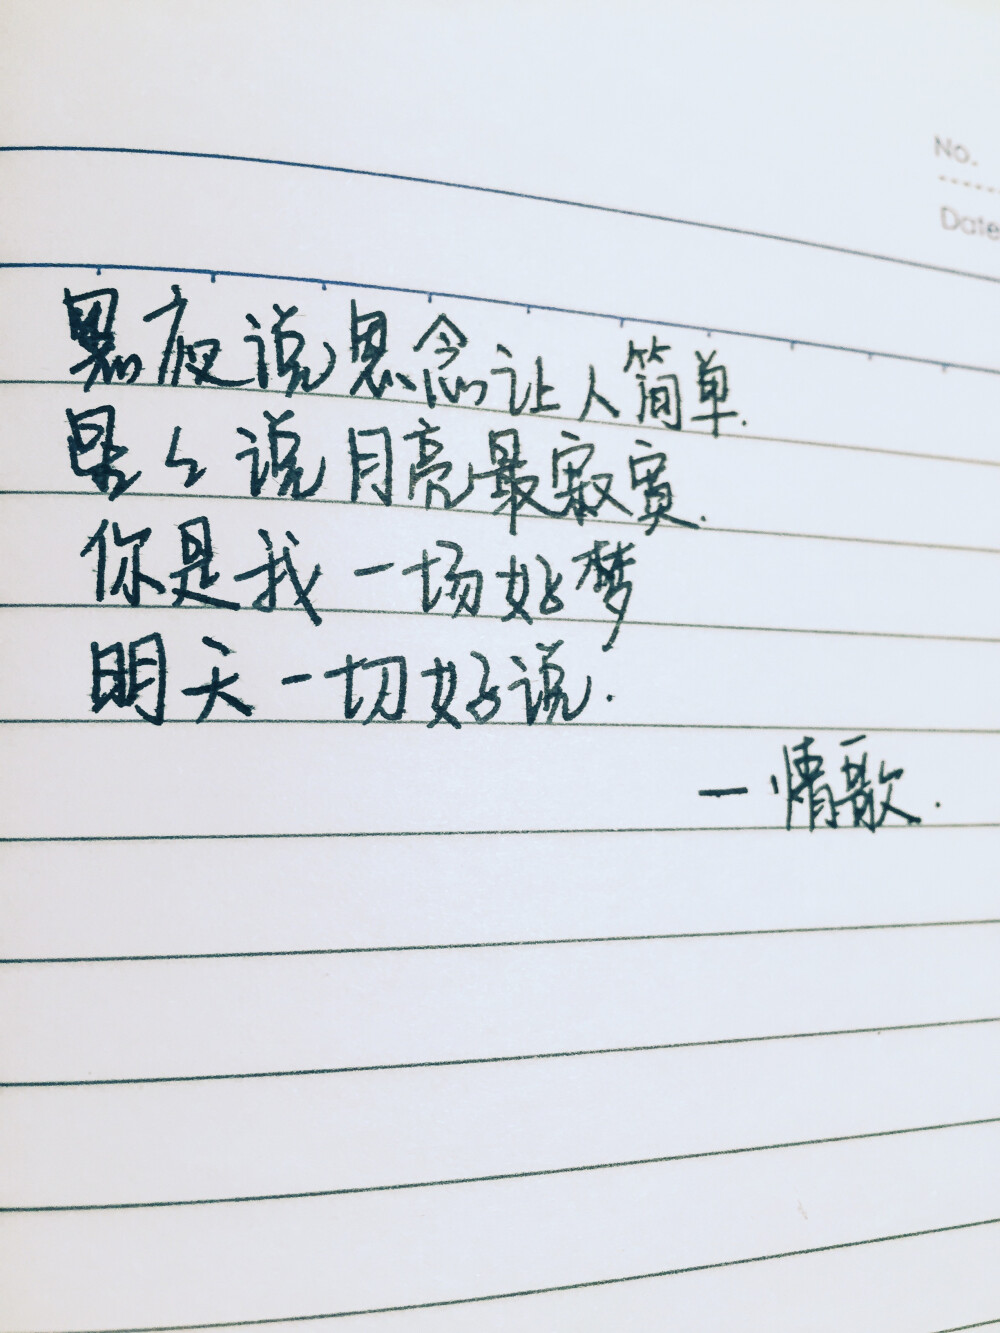 No.
Date
黑夜说思念让人简单.
星星说月亮最寂寞.
你是我一场好梦
明天一切好说.
—情歌.